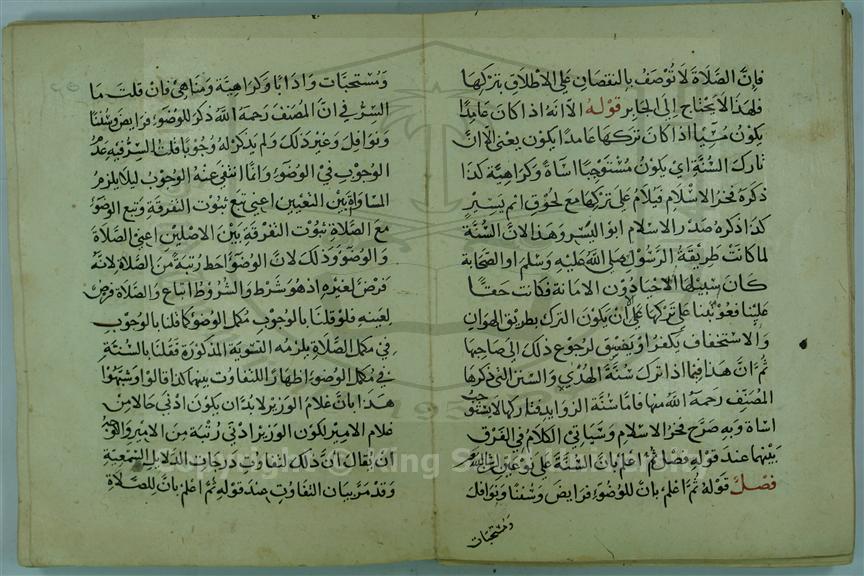 فان الصلاة لا توصف بالنقصان على الاطلاق بتركها
فلهذا لا يحتاج الى الجابر قوله الا انه اذا كان عامدا
يكون مسيا اذا كان تركها عامدا يكون يعنى الا ان
تارك السنة اى يكون مستوجبا اساة وكراهية كذا
ذكره فخر الاسلام فيلام على تركها مع لحوق اثم يسير
كذا ذكره صدر الاسلام ابو اليسر وهذا لان السنة
لما كانت طريقة الرسول صلى الله عليه وسلم او الصحابة
كان سبيلها الاحياء دون الاماتة فكانت حقا
علينا فعوتبنا على تركها على ان يكون الترك بطريق الهوان
والاستخفاف يكفر او يفسق لرجوع ذلك الى صاحبها
ثم ان هذا فيما اذا ترك سنة الهدى والسنن التى ذكرها
المصنف رحمه الله منها فاما سنة الزوايد فتاركها لا يستوجب
اساة وبه صرح فخر الاسلام وسياتى الكلام فى الفرق
بينهما عند قوله فصل ثم اعلم بان السنة على نوعين
فصل قوله ثم اعلم بان للوضوء فرايض وسننا ونوافل
ومستحبات
ومستحبات وادابا وكراهية ومناهى فان قلت ما
السر فى ان المصنف رحمه الله ذكر للوضوء فرايض وسننا
ونوافل وغير ذلك ولم يذكر له وجوبا قلت السر فيه عدم
الوجوب فى الوضوء وانما انتفى عنه الوجوب ليلا يلزم
المساواة بين التبعين اعنى تبع ثبوت التفرقة وتبع الوضوء
مع الصلاة ثبوت التفرقة بين الاصلين اعنى الصلاة
والوضوء وذلك لان الوضوء احط رتبة من الصلاة لانه
فرض لغيره اذ هو شرط والشروط اتباع والصلاة فرض
لعينه فلو قلنا بالوجوب مكمل الوضوء كما قلنا بالوجوب
فى مكمل الصلاة يلزمه التسوية المذكورة فقلنا بالسنة
فى مكمل الوضوء اظهارا للتفاوت بينهما كذا قالوا وشبهوا
هذا بان غلام الوزير لا بد ان يكون ادنى حالا من
غلام الامير لكون الوزير ادنى رتبة من الامير والاوجه
ان يقال ان ذلك لتفاوت درجات الدلايل السمعية
وقد مر بيان التفاوت عند قوله ثم اعلم بان للصلاة
Copyright © King Saud University